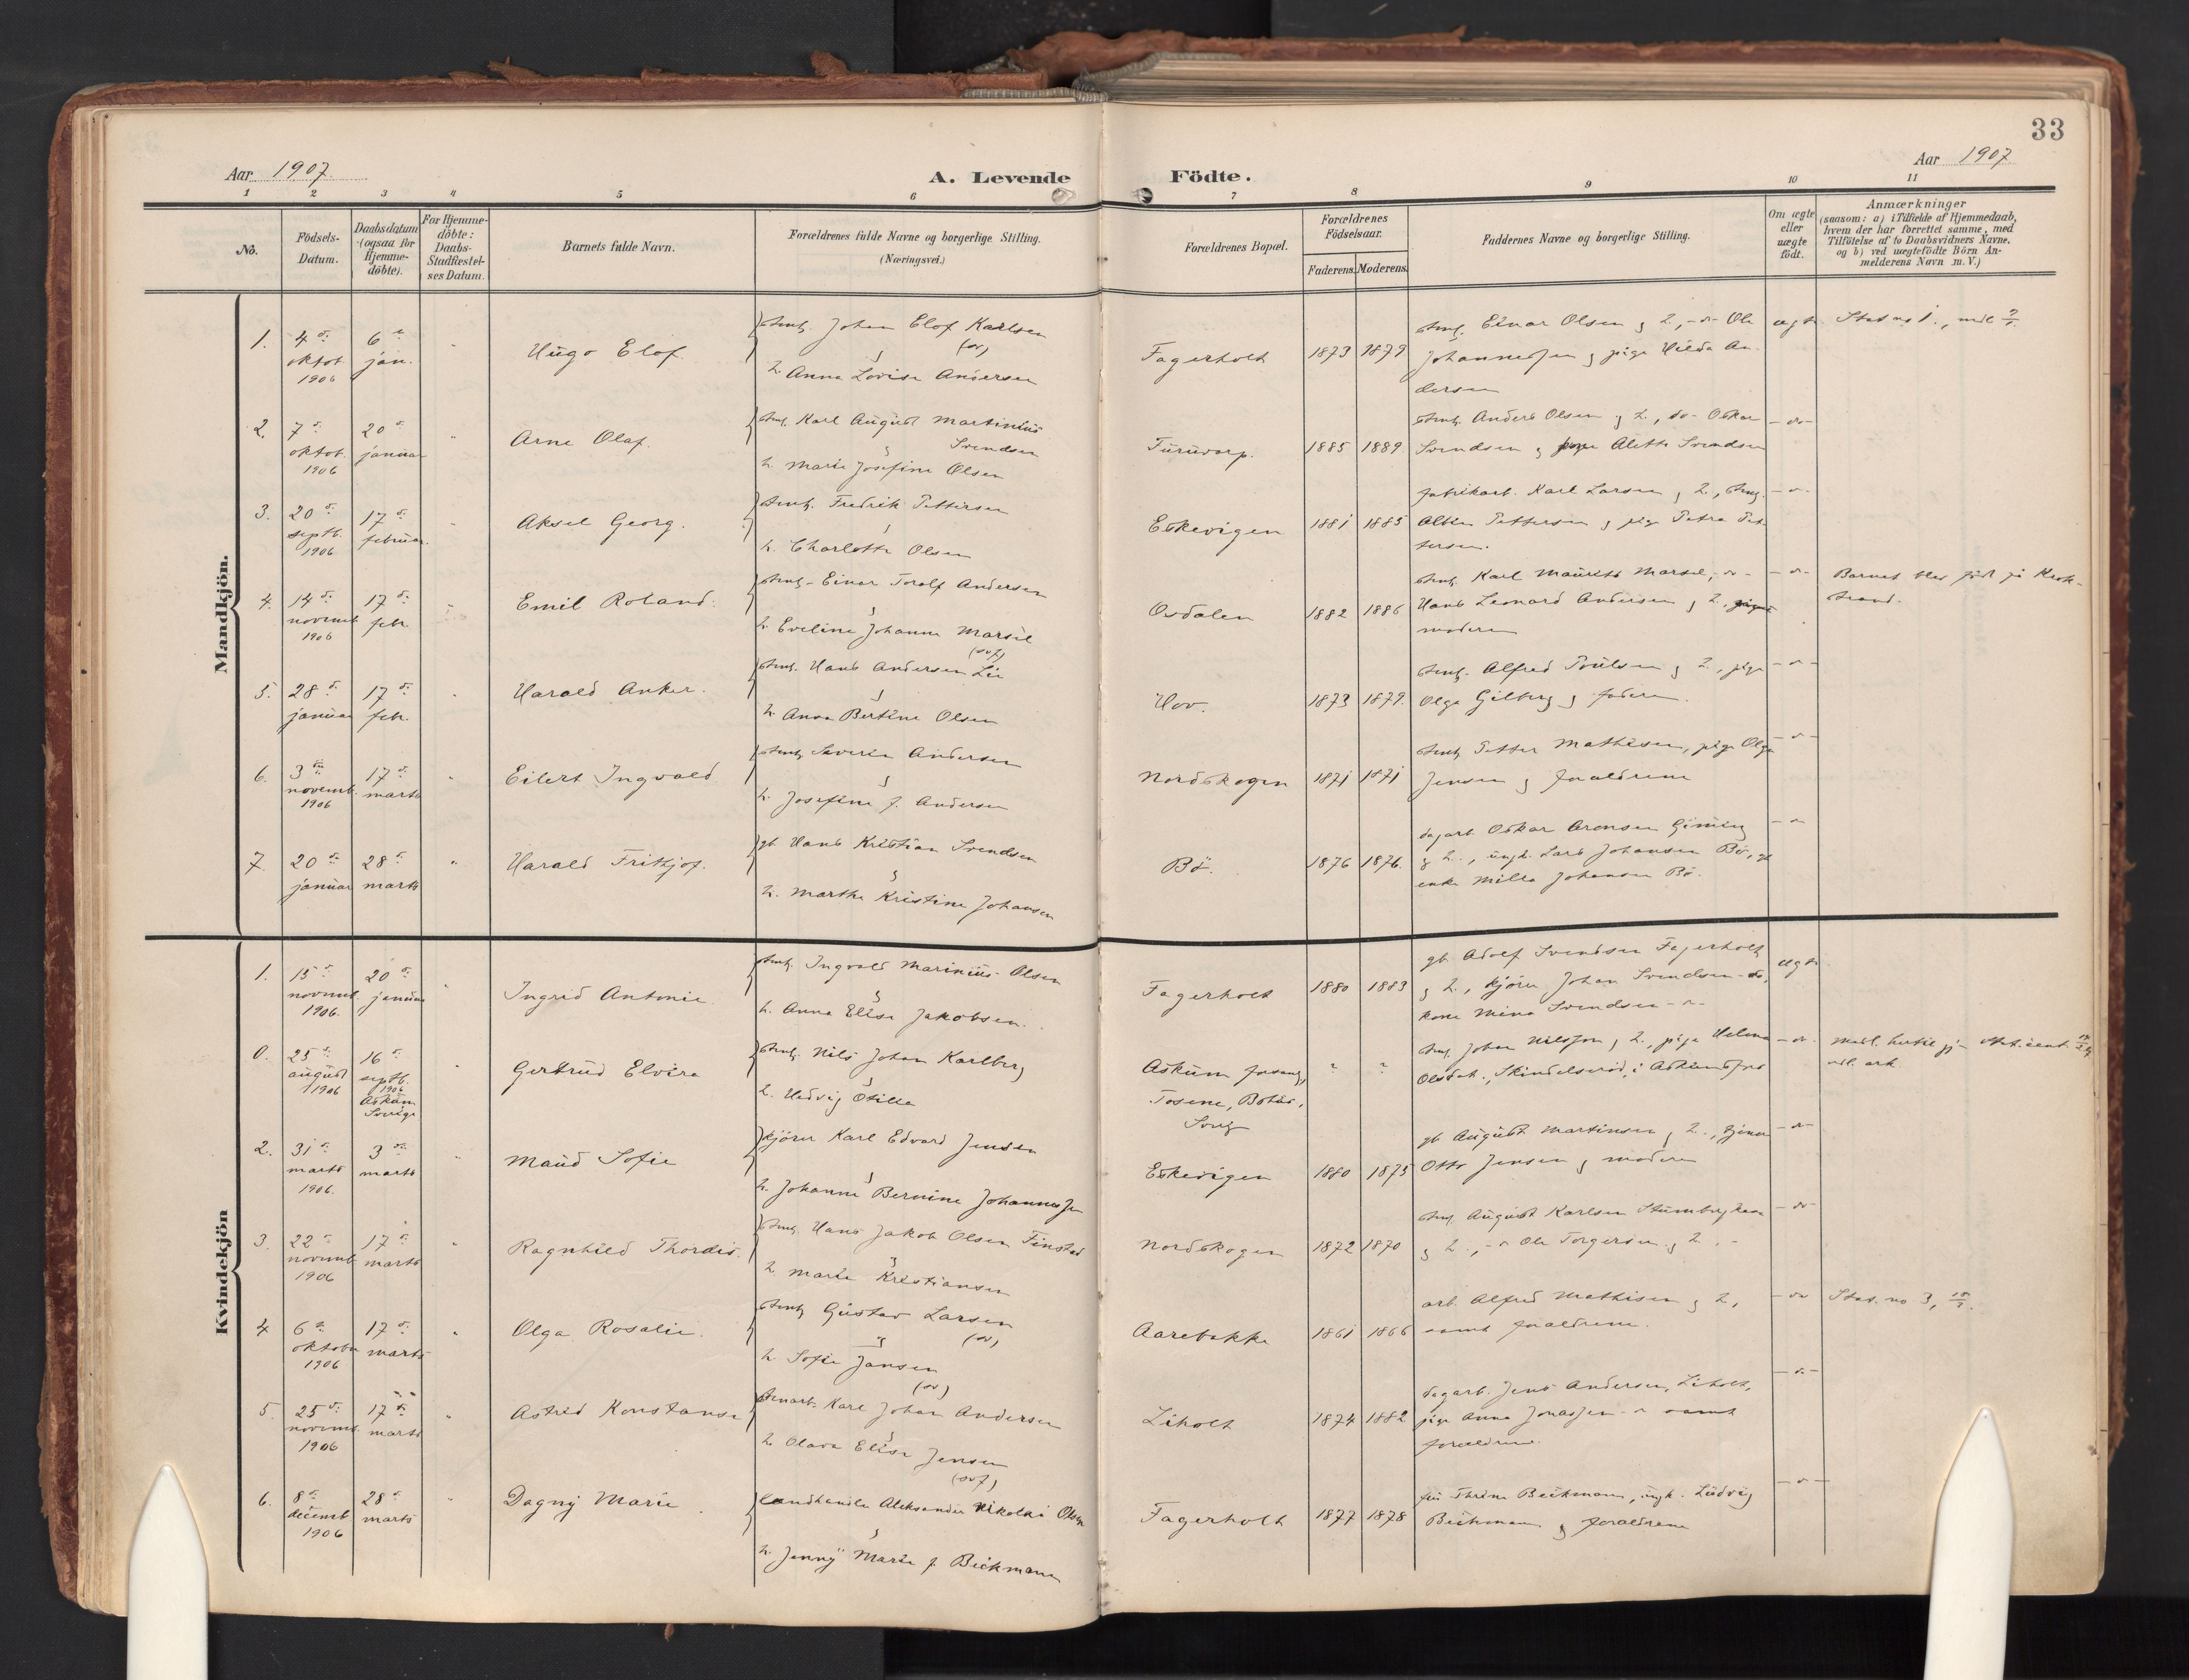 33
Aar 1907
A. Levende Födte.
Aar 1907
1 2 3 4 5 6 7 8 9 10 11
No.
Födsels-
Datum.
Daabsdatum
(ogsaa for
Hjemme-
döbte).
For Hjemme-
döbte:
Daabs-
Stadfæstel-
ses Datum.
Barnets fulde Navn.
Forældrenes fulde Navne og borgerlige Stilling.
(Næringsvei.)
Forældrenes Bopæl.
Forældrenes
Födselsaar.
Faderens. Moderens.
Faddernes Navne og borgerlige Stilling.
Om ægte
eller
uægte
födt.
Anmærkninger
(saasom: a) i Tilfælde af Hjemmedaab,
hvem der har forrettet samme, med
Tilföielse af to Daabsvidners Navne.
og b) ved uægtefödte Börn An-
melderens Navn m. V.)
Mandkjön.
1. 4 oktob. 1906
6 jan.
Hugo Elof.
Johan Elof Karlsen
(sv)
h. Anna Lovise Andersen
Fagerholt 1873 1879
Einar Olsen g h., -o- Ole
Johannessen g pige Hilda An-
dersen
ægte
2. 7 oktob. 1906
20 januar
Arne Olaf.
Karl August Martinius
Svendsen
h. Marie Josefine Olsen
1885 1889
Anders Olsen g h., do- Oskar
Svendsen g Alette Svendsen
-do-
3. 20 septb. 1906
17 februar.
Aksel Georg.
Fredrik Pettersen
h. Charlotte Olsen
Eskevigen 1881 1885
fabrikarb. Karl Larsen g h.,
Pettersen g pige Petra Pet-
tersen.
-o-
4. 14 novemb 1906
17 febr.
Emil Roland.
Einar Torolf Andersen
h. Eveline Johanne Marsel
(svf)
Osdalen 1882 1886
Karl Maurits Marsel, -o-
Hans Leonard Andersen g h.,
moderen
-o-
Barnet blev född på Krok-
strand.
5. 28 januar
17 febr.
Harald Anker.
Hans Andersen Lie
h. Anna Bertine Olsen
Hov. 1873 1879.
Alfred Poulsen g h., pige
Olga Gilberg g faderen.
-o-
6. 3 novemb. 1906
17 marts
Eilert Ingvald
Severin Andersen
h. Josefine f. Andersen
Nordskogen 1871 1871
Petter Mathisen, pige Olga
Jensen g forældrene
-o-
7. 20 januar
28 marts
Harald Frithjof.
gb Hans Kristian Svendsen
h. Marthe Kristine Johansen
Bö. 1876 1876.
dagarb. Oskar Aronsen
g h., ungk. Lars Johansen Bö,
enke Milla Johansen Bö.
-o-
Kvindekjön
1. 15 novemb. 1906.
20 januar
Ingrid Antonie
Ingvald Marinius Olsen
h. Anna Elise Jakobsen.
Fagerholt 1880 1883
gb. Adolf Svendsen Fagerholt
g h., kjörer Johan Svendsen -do,
kone Mina Svendsen -o-
ægte
0. 25 august 1906
16 septb. 1906
Askum
Sverige
Gertrud Elvira
Nils Johan Karlberg
h. Hedvig Otilie
Askum
Tosene,
? ?
Johan Nilsson g h., pige Helena
-o-
2. 31 marts 1906.
3 marts
Maud Sofie
kjörer Karl Edvard Jensen
h. Johanne Bernine Johannessen
Eskevigen 1880 1875
gb August Martinsen g h.,
Otto Jensen g moderen
-o-
3. 22 novemb 1906
17 marts
Ragnhild Thordis.
Hans Jakob Olsen Finstad
h Marie Kristiansen
Nordskogen 1872 1870
August Karlsen
g h., -o Ole Torgersen g h.
-do-
4 6 oktober 1906
17 marts
Olga Rosalie.
Gustav Larsen
(sv)
h Sofie Jansen
(sv)
Aarebakke 1861 1866
arb. Alfred Mathisen g h,
samt forældrene.
-do
Stat. no 3,
5. 25 novemb. 1906
17 marts
Astrid Konstanse
Karl Johan Andersen
h Olava Elise Jensen
(svf)
Liholt 1874 1882
dagarb. Jens Andersen, Liholt,
pige Anna Jonassen -o samt
forældrene.
-o-
6. 8 decemb 1906
28 marts
Dagny Marie
Landhandler Aleksander Nikolai Olsen
h. Jenny Marie f. Beckmann
Fagerholt 1877 1878
Thrine Beckmann, ungk. Ludvig
Beckmann g forældrene
-o-